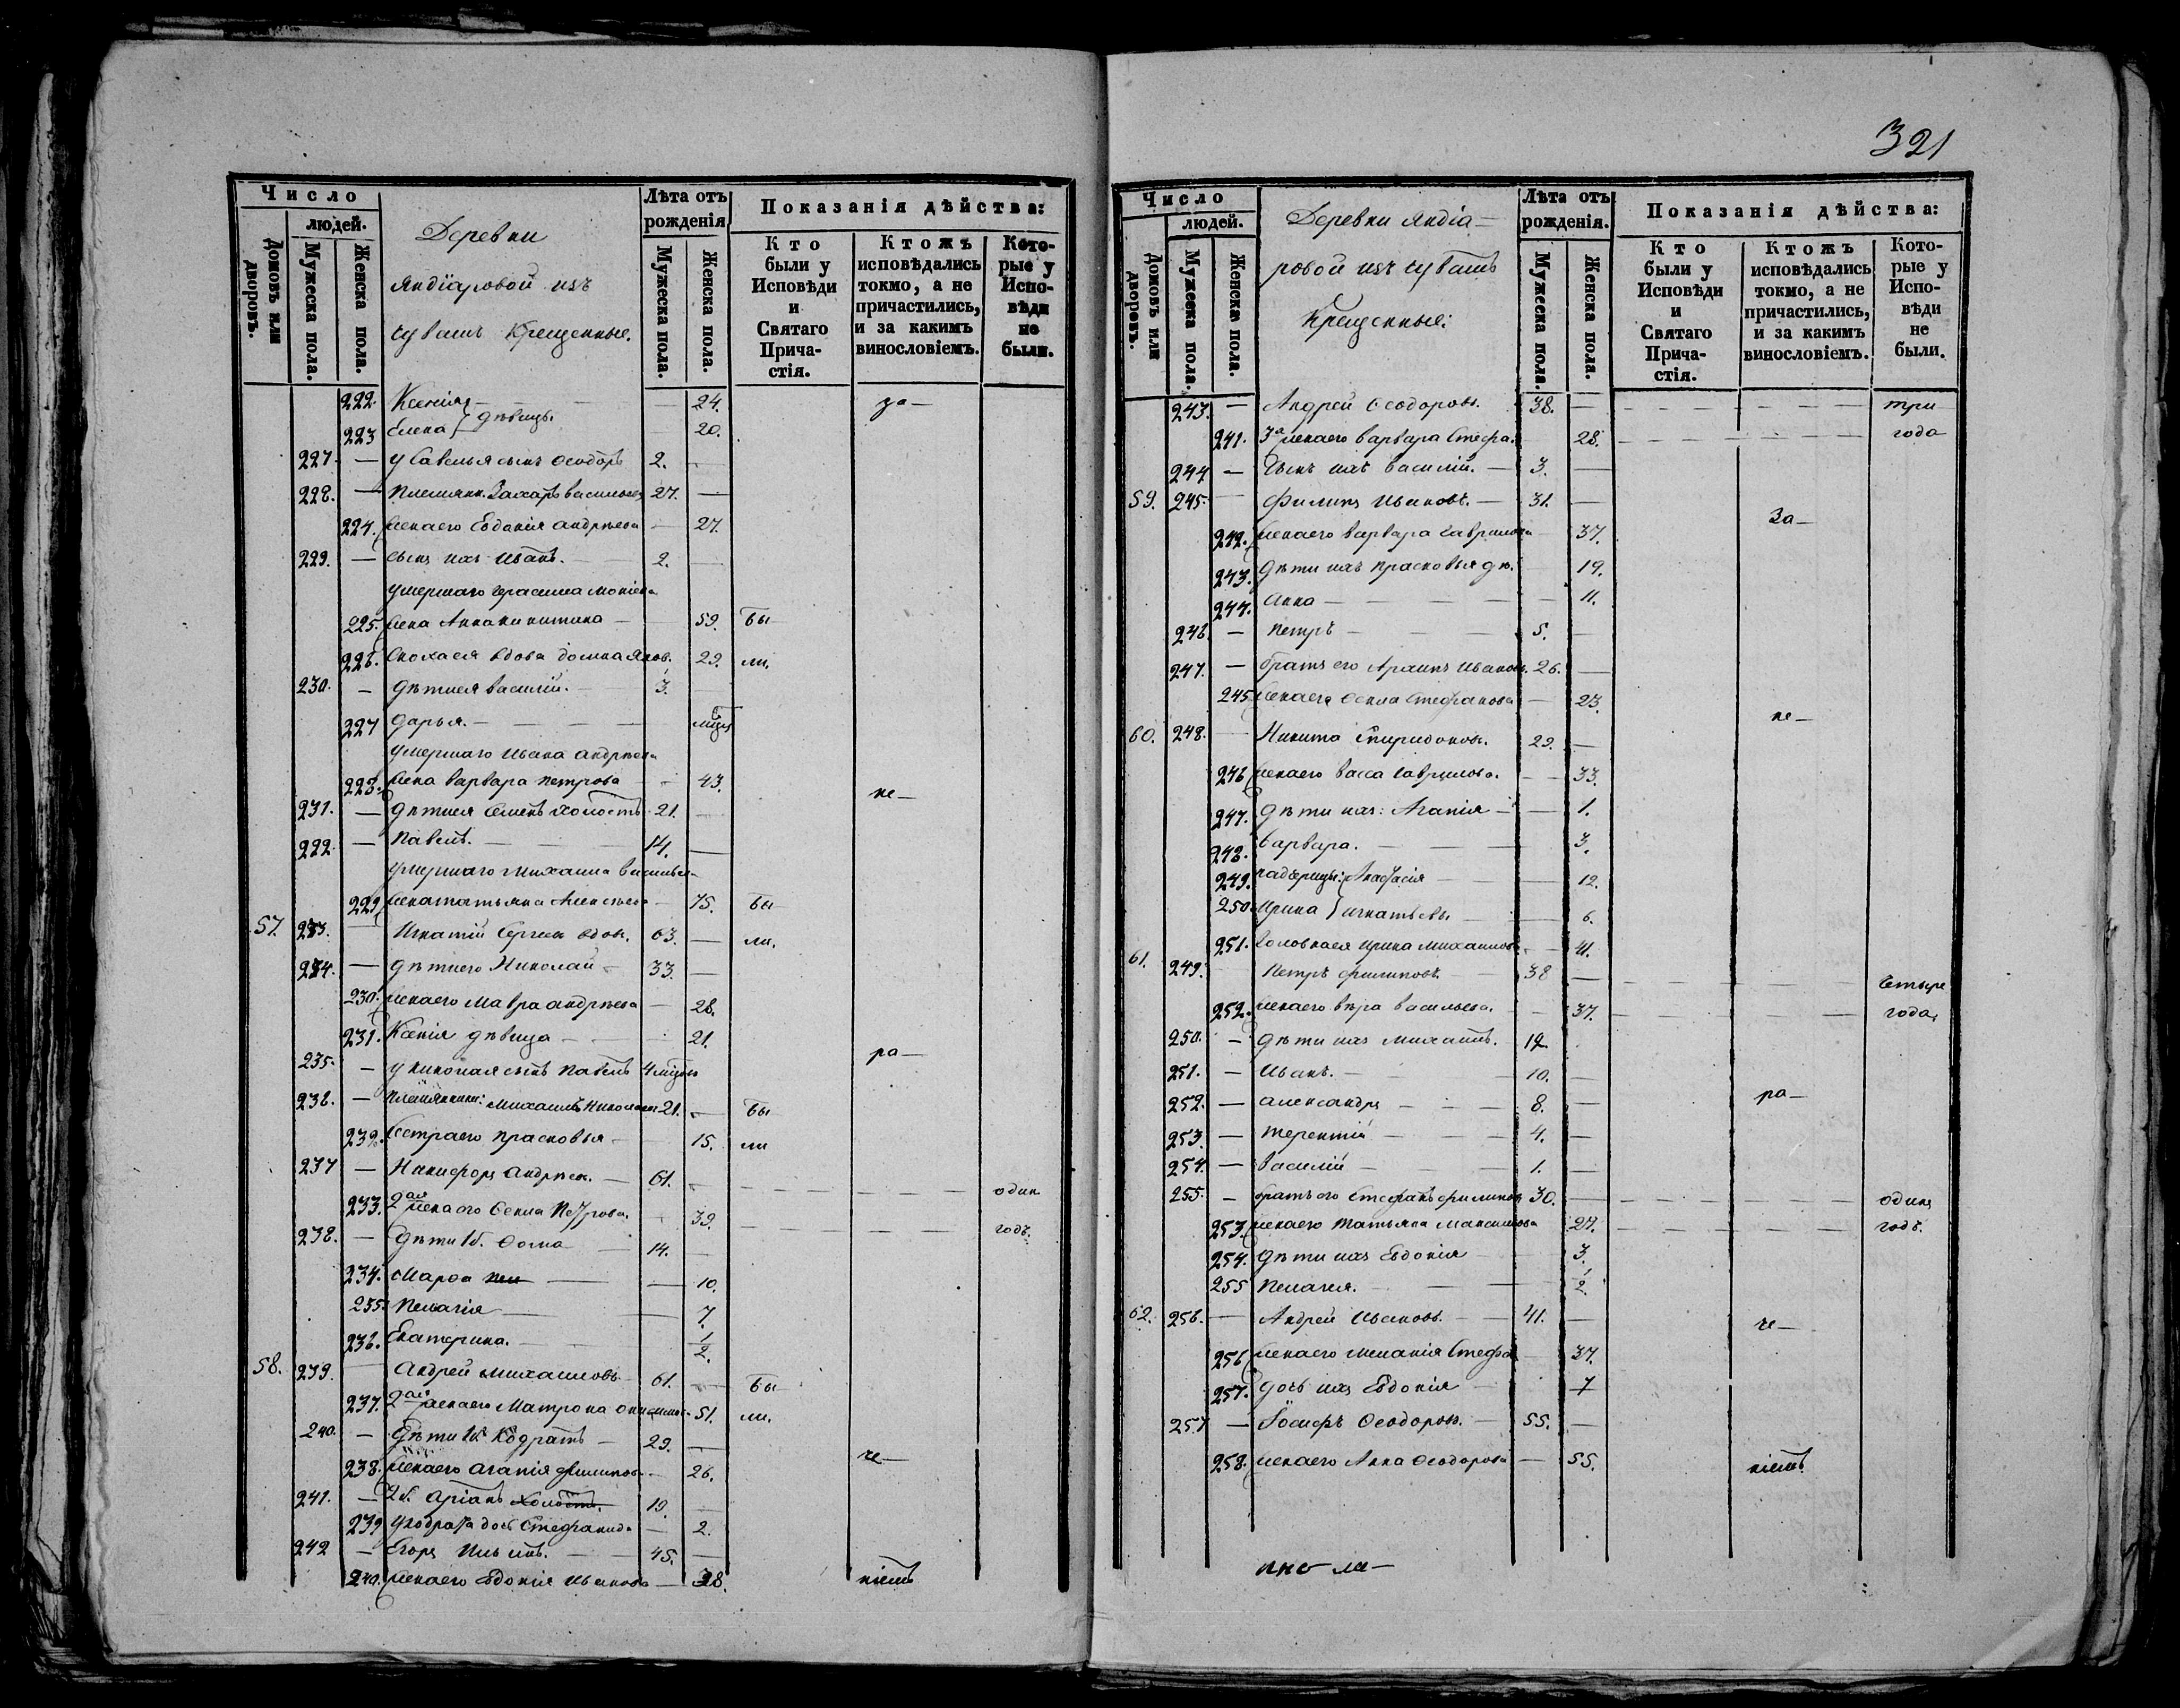 321
Число
людей.
Домовъ или дворовъ.
Мужеска пола.
Женска пола.
Деревни
Яндіаровой изъ
чувашъ Крещенные.
Лѣта отъ рожденія
Мужеска пола.
Женска пола.
Показанія дѣйства:
Кто были у Исповѣди и Святаго Прича-стія.
Ктожъ исповѣдались токмо, а не причастились, и за какимъ винословіемъ.
Кото-рые у Испо-вѣди не были.
222. Ксенія 24. за
223 Елена } дѣвицы. 20.
227. — у Савелья сынъ Ѳеодоръ 2. —
228. — Племянн. Захаръ Васильевъ 27. —
224. Жена его Евдокія Андрѣева — 27.
229. — сынъ ихъ Иванъ. — 2. —
умершаго Герасима
225. Жена Анна Никитина — 59. Бы
226. Сноха ея вдова Домна Яков. 29. ли.
230. — дѣти ея Василій. 3.
227 Дарья.
умершаго Ивана Андрѣева
228. Жена Варвара Петрова — 43. не
231. — дѣти ея Семенъ холостъ 21.
222 — Павелъ. — 14. —
умершаго Михаила Васильева
229 Жена Татьяна Алексѣева 75. Бы
57. 233. — Игнатій Сергѣевъ вдов. 63. — ли.
234. — дѣти его Николай 33. —
230. Жена его Мавра Андрѣева — 28.
231. Ксенія дѣвица — 21. ра
235. — у Николая сынъ Павелъ 4
236. — Племянники: Михаилъ Николаевъ 21. — Бы
232. Сестра его Прасковья — 15. ли
237 — Никифоръ Андрѣев. — 61. — один
233. 2ая жена его Ѳекла Петрова. 39. годъ.
238. — дѣти 1б. Ѳома — 14. —
234. Марѳа — 10.
235. Пелагія — 7.
236. Екатерина. 1/2.
58. 239. Андрей Михайловъ 61. — Бы
237. 2ая жена его Матрона 51. ли.
240. — Дѣти 1б. Кодратъ — 29. — че
238. Жена его Агапія Филипов. 26.
241. — 2б. Аріанъ холостъ. 19.
239 у Кодрата дочь Стефанида — 2.
242 — Егоръ Ильинъ. — 45. —
240. Жена его Евдокія Иванова — 38. ніемъ
Число
людей.
Домовъ или дворовъ.
Мужеска пола.
Женска пола.
Деревни Яндіа—
ровой изъ чувашъ
Крещенные:
Лѣта отъ рожденія.
Мужеска пола.
Женска пола.
Показанія дѣйства:
Кто были у Исповѣди и Святаго Прича-стія.
Ктожъ исповѣдались токмо, а не причастились, и за какимъ винословіемъ.
Кото-рые у Испо-вѣди не были.
243. — Андрей Ѳеодоров. 38. — три
241. 3а жена его Варвара Стефа. 28. года
244 — Сынъ ихъ Василій. — 3. —
59. 245. Филипъ Ивановъ. — 31. — За
242. Жена его Варвара Гаврилова 37.
243. Дѣти ихъ Прасковья дѣ. 19.
244. Анна — 11.
246. — Петръ — 5. —
247. — братъ его Ивановъ. 26. —
245. Жена его Ѳекла Стефанова — 23. не
60. 248. Никита Спиридонов. 29. —
246 Жена его Васса Гаврилова. — 33.
247. Дѣти ихъ: Агапія — 1.
248. Варвара. — 3.
249. падчерицы: Анастасія — 12.
250. Ирина } Игнатьевы — 6.
251. Золовка ея Ирина Михаилов. — 41.
61. 249. Петръ Филиповъ. 38 — Четыре
252. Жена его Вѣра Васильева. — 37. года.
250. — Дѣти ихъ Михаилъ. 12.
251. — Иванъ. — 10. —
252. — Александръ — 8. — ра
253 — Терентій — 4. —
254. — Василій — 1. —
255. — братъ его Стефанъ Филиповъ 30. — одинъ
253. Жена его Татьяна Максимова 27. годъ.
254. Дѣти ихъ Евдокія — 3.
255 Пелагея. — 1/2.
62. 256. — Андрей Ивановъ. — 41. — че
256 Жена его Меланія Стефа. 37.
257. дочь ихъ Евдокія 7
257 — Іосифъ Ѳеодоров. — 55. —
258. Жена его Анна Ѳеодорова — 55. ніемъ